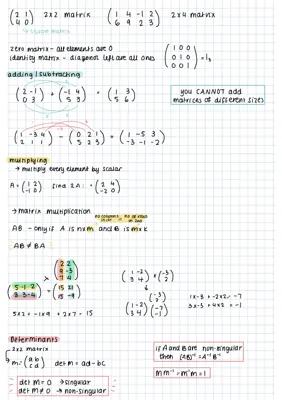 (2 1
4 0) 2x2 matrix (1 4 -1 2
6 9 2 3) 2x4 matrix
↳ square matrix
zero matrix - all elements are 0
identity matrix - diagonal left are all ones (1 0 0
0 1 0
0 0 1) = I₃
adding / subtracting
(2 -1
0 3) + (-1 4
5 3) = (1 3
5 6)
you CANNOT add
matrices of different sizes
(1 -3 4
2 1 1) - (0 2 1
5 2 3) = (1 -5 3
-3 -1 -2)
multiplying
→ multiply every element by scalar
A = (1 2
-1 0) find 2A : (2 4
-2 0)
→ matrix multiplication
AB - only if A is nxm and B is mxk
AB ≠ BA
(2 2
9 -3
7 4)
×
(5 -1 2
3 3 -4) = (15 21
15 -9)
5x2 + -1x9 + 2x7 = 15
(1 -2
3 4) × (-3
2)
(-3
2)
(1 -2
3 4) (-7
-1)
1x-3 + -2x2 = -7
3x-3 + 4x2 = -1
Determinants
2x2 matrix
M = (a b
c d) det M = ad - bc
det M = 0 → singular
det M ≠ 0 → non-singular
if A and B are non-singular
then (AB)⁻¹ = A⁻¹ B⁻¹
MM⁻¹ = M⁻¹M = I